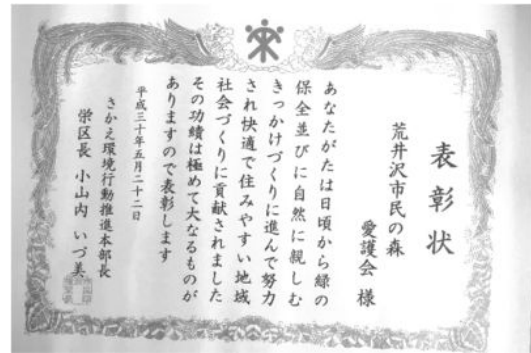 表彰状
荒井沢市民の森
愛護会 様
あなたがたは日頃から緑の
保全並びに自然に親しむ
きっかけづくりに進んで努力
され快適で住みやすい地域
社会づくりに貢献されました
その功績は極めて大なるものが
ありますので表彰します
平成三十年五月二十二日
さかえ環境行動推進本部長
栄区長 小山内 いづ美